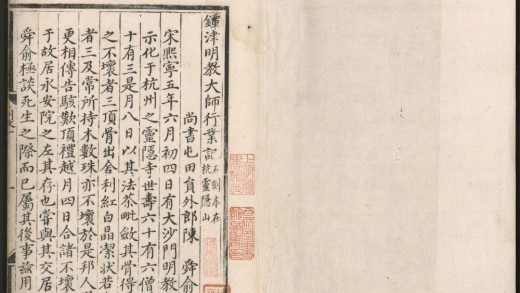 鐔津明教大師行業記 石刻本在杭靈隱山
尚書屯田員外郎陳 舜俞
宋熙寧五年六月初四日有大沙門明教
示化于杭州之靈隱寺世壽六十有六僧
十有三是月八日以其法茶毗斂其骨得
之不壞者三頂骨出舍利紅白晶潔狀若
者三及常所持木數珠亦不壞於是邦人
更相傳告駭歎頂禮越月四日合諸不壞
于故居永安院之左其存也嘗與其交居
舜俞極談死生之際而已屬其後事茲用